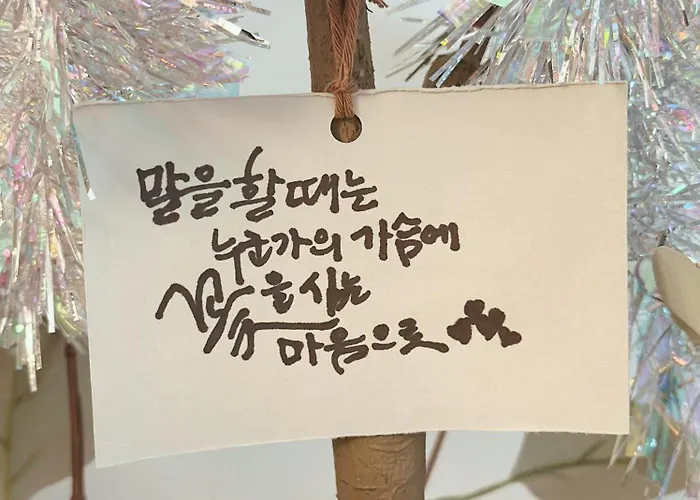 말을 할 때는
누군가의 가슴에
꽃을 심는
마음으로